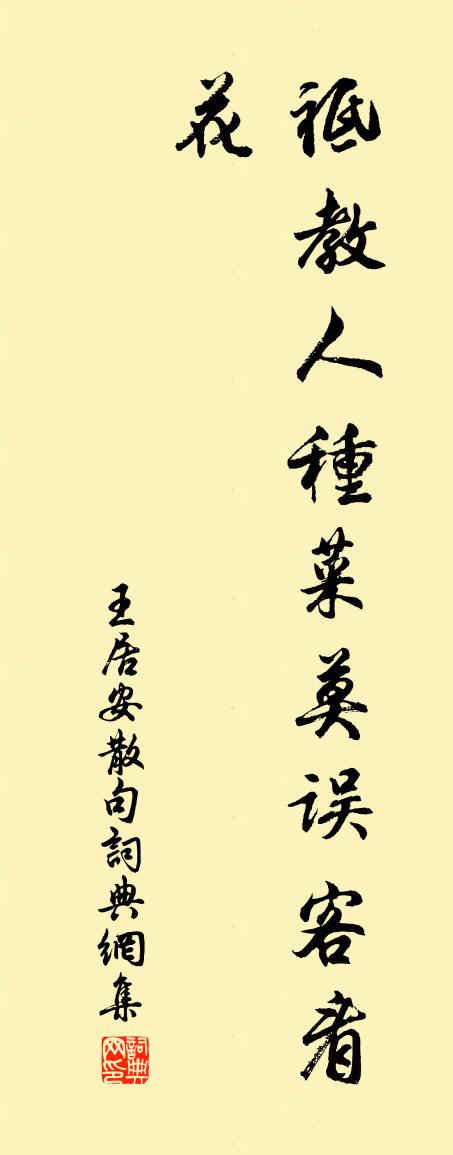 祗教人種菜莫误客看
花
王居安散句詞典網集
詞典网印